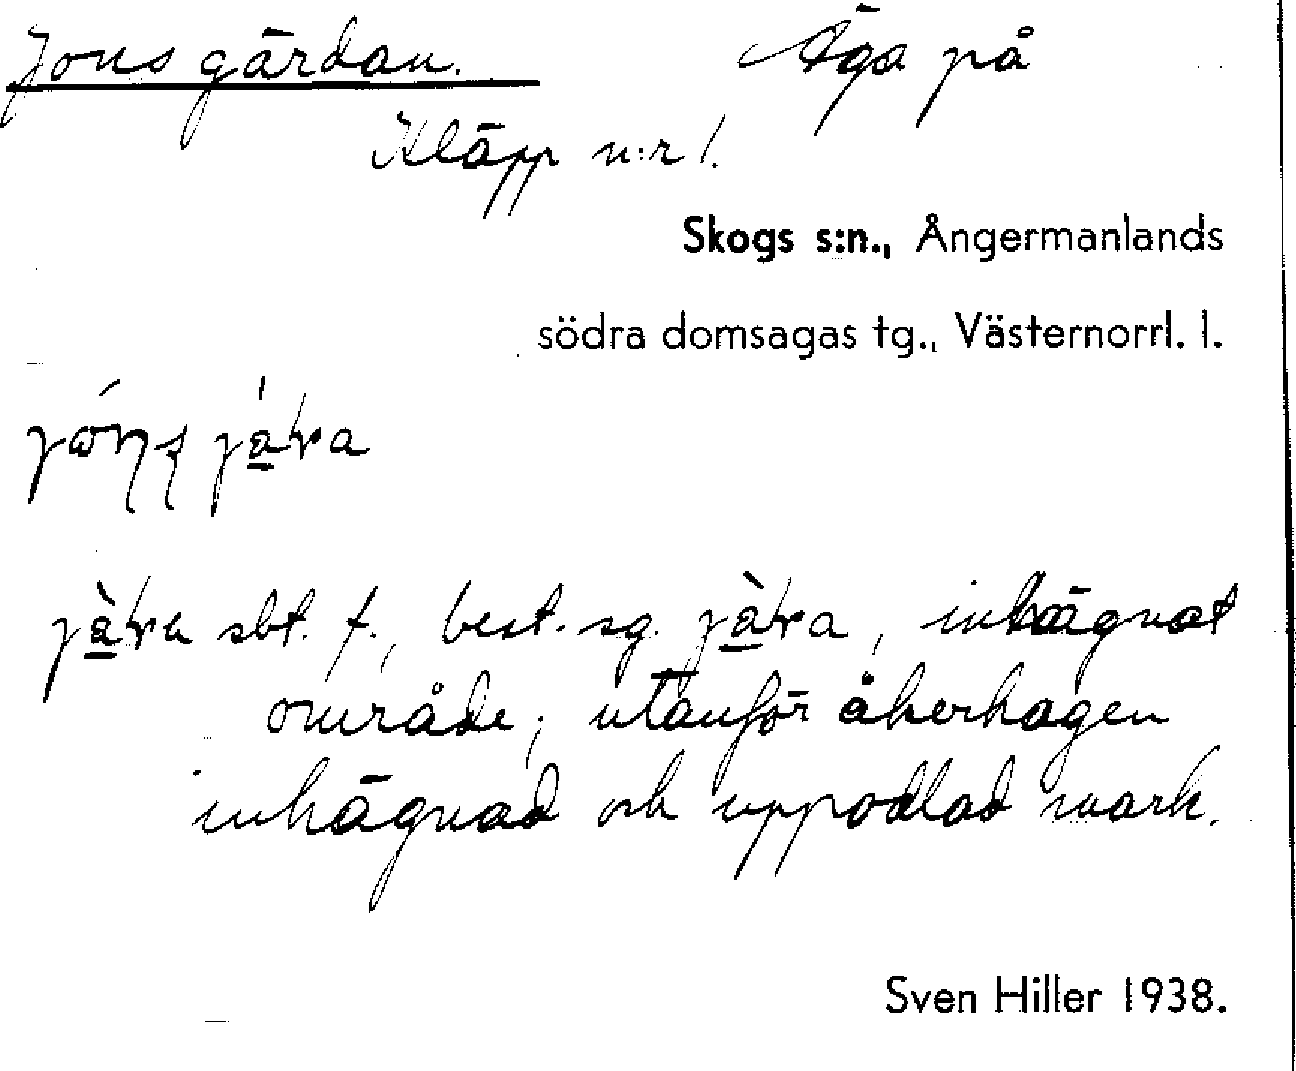 Jonsgärdan. Äga på
Kläpp n:r 1.
Skogs s:n., Ångermanlands
södra domsagas tg., Västernorrl. l.
sbt. f., best. sg. , inhägnat
område; utanför åkerhagen
inhägnad och uppodlad mark.
Sven Hiller 1938.